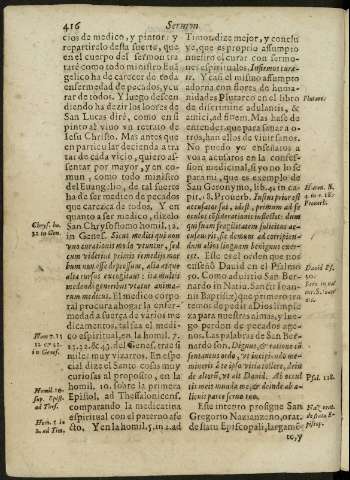 416 Sermon
cios de medico, y pintor: y
repartirelo desta suerte, que
en el cuerpo del sermon tra
taré como todo ministro Euã
gelico ha de carecer de toda
enfermedad de pecados, y cu
rar de todos. Y luego descen
diendo ha dezir los loores de
San Lucas diré, como en si
pinto al viuo vn retrato de
Iesu Christo. Mas antes que
en particular decienda a tra
tar de cada vicio, quiero as-
sentar por mayor, y en co-
mun, como todo ministro
del Euangelio, de tal suerte
ha de ser medico de pecados
que carezca de todos. Y en
quanto a ser medico, dizelo
San Chrysostomo homil. 32.
in Genes. Sicut medici que non
vno curationis modo vtuntur, sed
cum viderint primis remedijs mor
bum non esse depulsum, alia atque
alia rursus excogitant: ita multis
medendi generibus vtatur anima-
rum medicus. El medico corpo
ral procura ahorrar la enfer-
medad a fuerça de varios me
dicamentos, tal sea el medi-
co espiritual, en la homil. 7.
Genes. trae si
miles muy vizarros. En espe
cial dize el Santo cosas muy
curiosas al proposito, en la
homil. 10. sobre la primera
Epistol. ad Thessalonicens.
comparando la medicatina
espiritual con el paterno afe
cto. Y en la homil. 5. in 2. ad
Chrys. ho.
32 in Gen.
in Genes.
Homil. 10.
sup. Epist.
ad Thes.
Hom. 5. in
2. ad Tim.
Timot. dize mejor, y conclu
ye, que es proprio assumpto
nuestro el curar con sermo-
nes espirituales. Infirmos cura-
te. Y casi el mismo assumpto
adorna con flores de huma-
nidades Plutarco en el libro
de discrimine adulantis, &
amici, ad finem. Mas hase de
entender, que para sanar a o-
tros, han ellos de viuir sanos.
No puedo yo enseñaros a
vos a acusaros en la confes-
sion medicinal, si yo no lo se
para mi, que es exemplo de
San Geronymo, lib. 4. in ca-
pit. 18. Prouerb. Iustus prior est
accusator sui, id est, primum ad se
oculos considerationis inflectit: dum
quos suam fragilitatem sollicitus ac-
cusauerit, se demum ad corripien-
dum alios linguam benignus exer-
cet. Esse es el orden que nos
enseñó Dauid en el Psalmo
50. Como aduirtio San Ber-
nardo in Natiu. Sancti Ioan-
nis Baptistæ, que primero en
temos de pedir a Dios limpie
za para nuestras almas, y lue-
go perdon de pecados age-
nos. Las palabras de San Ber-
nardo son. Dignus, & ratione cõ
sentaneus ordo, vt incipiendo me-
minerit à te ipso visitatore, dein
de alteri, vt ait Dauid. Ab occul
tis meis munda me, & deinde ab a-
lienis parce seruo tuo.
Este intento prosigue San
Gregorio Nazianzeno, orat.
de statu Episcopali, largamẽ-
to, y
Plutarc.
Prouerb.
Dauid Ps.
50.
Psal. 118.